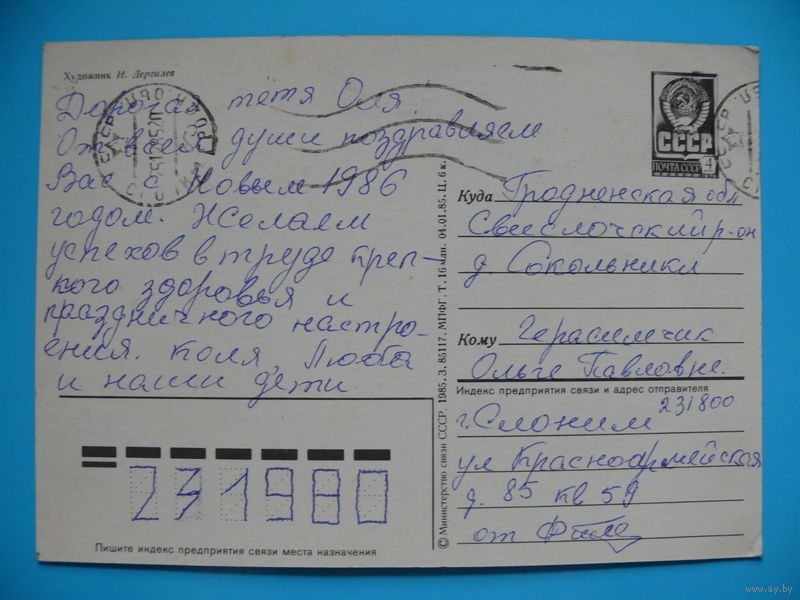 Художник И. Дергилев
Дорогая тётя Оля
От всей души поздравляем
Вас с Новым 1986
годом. Желаем
успехов в труде креп-
кого здоровья и
праздничного настро-
ения. Коля, Люба
и наши дети.
СССР
ПОЧТА СССР 4
Куда Гродненская обл
Свислочский р-он
д. Сокольники
Кому Герасимчик
Ольге Павловне.
Индекс предприятия связи и адрес отправителя
231800
г. Слоним
ул Красноармейская
д. 85 кв 59
от
231980
Пишите индекс предприятия связи места назначения
© Министерство связи СССР. 1985. З. 85117. МПФГ. Т. 16 млн. 04.01.85. Ц. 6 к.
www.ay.by